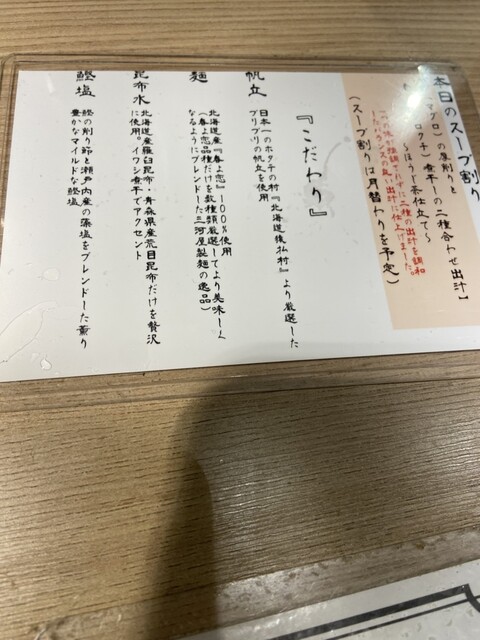 本日のスープ割り
マグロ）の厚削りと
ホタテ）煮干しの二種合わせ出汁】
～ほうじ茶仕立て～
強調しすぎずに二種の出汁を調和
したバランスの良い出汁に仕上げました。
（スープ割りは月替わりを予定）
『こだわり』
帆立
日本一のホタテの村『北海道猿払村』より厳選した
プリプリの帆立を使用
麺
北海道産『春よ恋』100％使用
（春よ恋品種だけを数種類厳選してより美味しく
なるようにブレンドした三河屋製麺の逸品）
昆布水
北海道産羅臼昆布・青森県産荒目昆布だけを贅沢
に使用。イワシ煮干でアクセント
鰹塩
鰹の削り節と瀬戸内産の藻塩をブレンドした薫り
豊かなマイルドな鰹塩